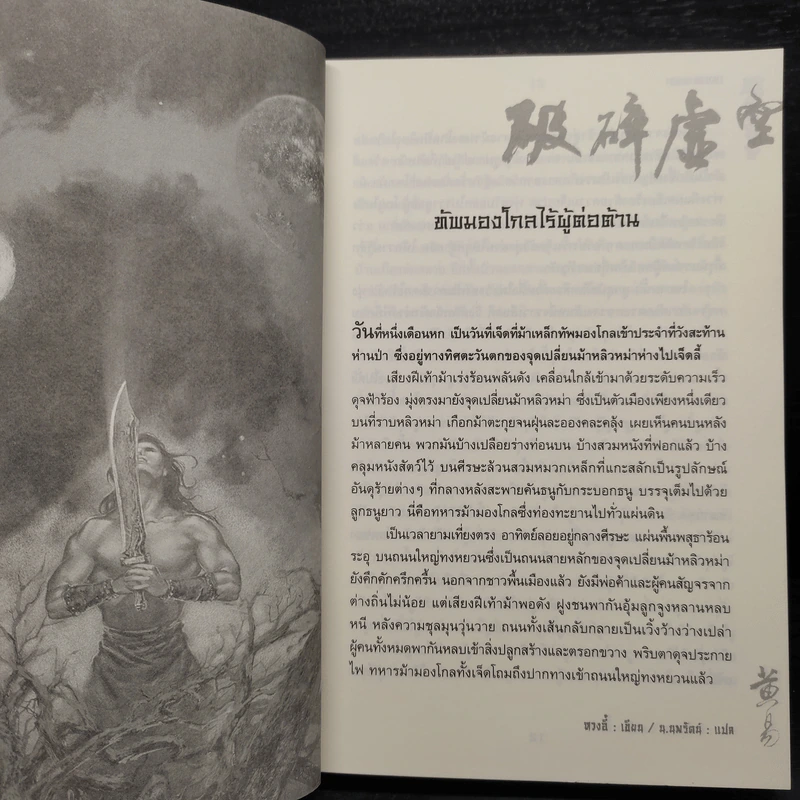 破碎虛空
ทัพมองโกลไร้ผู้ต่อต้าน
วันที่หนึ่งเดือนหก เป็นวันที่เจ็ดที่ม้าเหล็กทัพมองโกลเข้าประจำที่วังสะท้าน
ห่านป่า ซึ่งอยู่ทางทิศตะวันตกของจุดเปลี่ยนม้าหลิวหม่าห่างไปเจ็ดลี้
เสียงฝีเท้าม้าเร่งร้อนพลันดัง เคลื่อนใกล้เข้ามาด้วยระดับความเร็ว
ดุจฟ้าร้อง มุ่งตรงมายังจุดเปลี่ยนม้าหลิวหม่า ซึ่งเป็นตัวเมืองเพียงหนึ่งเดียว
บนที่ราบหลิวหม่า เกือกม้าตะกุยจนฝุ่นละอองคละคลุ้ง เผยเห็นคนบนหลัง
ม้าหลายคน พวกมันบ้างเปลือยร่างท่อนบน บ้างสวมหนังที่ฟอกแล้ว บ้าง
คลุมหนังสัตว์ไว้ บนศีรษะล้วนสวมหมวกเหล็กที่แกะสลักเป็นรูปลักษณ์
อันดุร้ายต่างๆ ที่กลางหลังสะพายคันธนูกับกระบอกธนู บรรจุเต็มไปด้วย
ลูกธนูยาว นี่คือทหารม้ามองโกลซึ่งท่องทะยานไปทั่วแผ่นดิน
เป็นเวลายามเที่ยงตรง อาทิตย์ลอยอยู่กลางศีรษะ แผ่นพื้นพสุธาร้อน
ระอุ บนถนนใหญ่ทงหยวนซึ่งเป็นถนนสายหลักของจุดเปลี่ยนม้าหลิวหม่า
ยังคึกคักครึกครื้น นอกจากชาวพื้นเมืองแล้ว ยังมีพ่อค้าและผู้คนสัญจรจาก
ต่างถิ่นไม่น้อย แต่เสียงฝีเท้าม้าพอดัง ฝูงชนพากันอุ้มลูกจูงหลานหลบ
หนี หลังความชุลมุนวุ่นวาย ถนนทั้งเส้นกลับกลายเป็นเวิ้งว้างว่างเปล่า
ผู้คนทั้งหมดพากันหลบเข้าสิ่งปลูกสร้างและตรอกขวาง พริบตาดุจประกาย
ไฟ ทหารม้ามองโกลทั้งเจ็ดโถมถึงปากทางเข้าถนนใหญ่ทงหยวนแล้ว
黄易
หวงอี้ : เขียน / น.นพรัตน์ : แปล